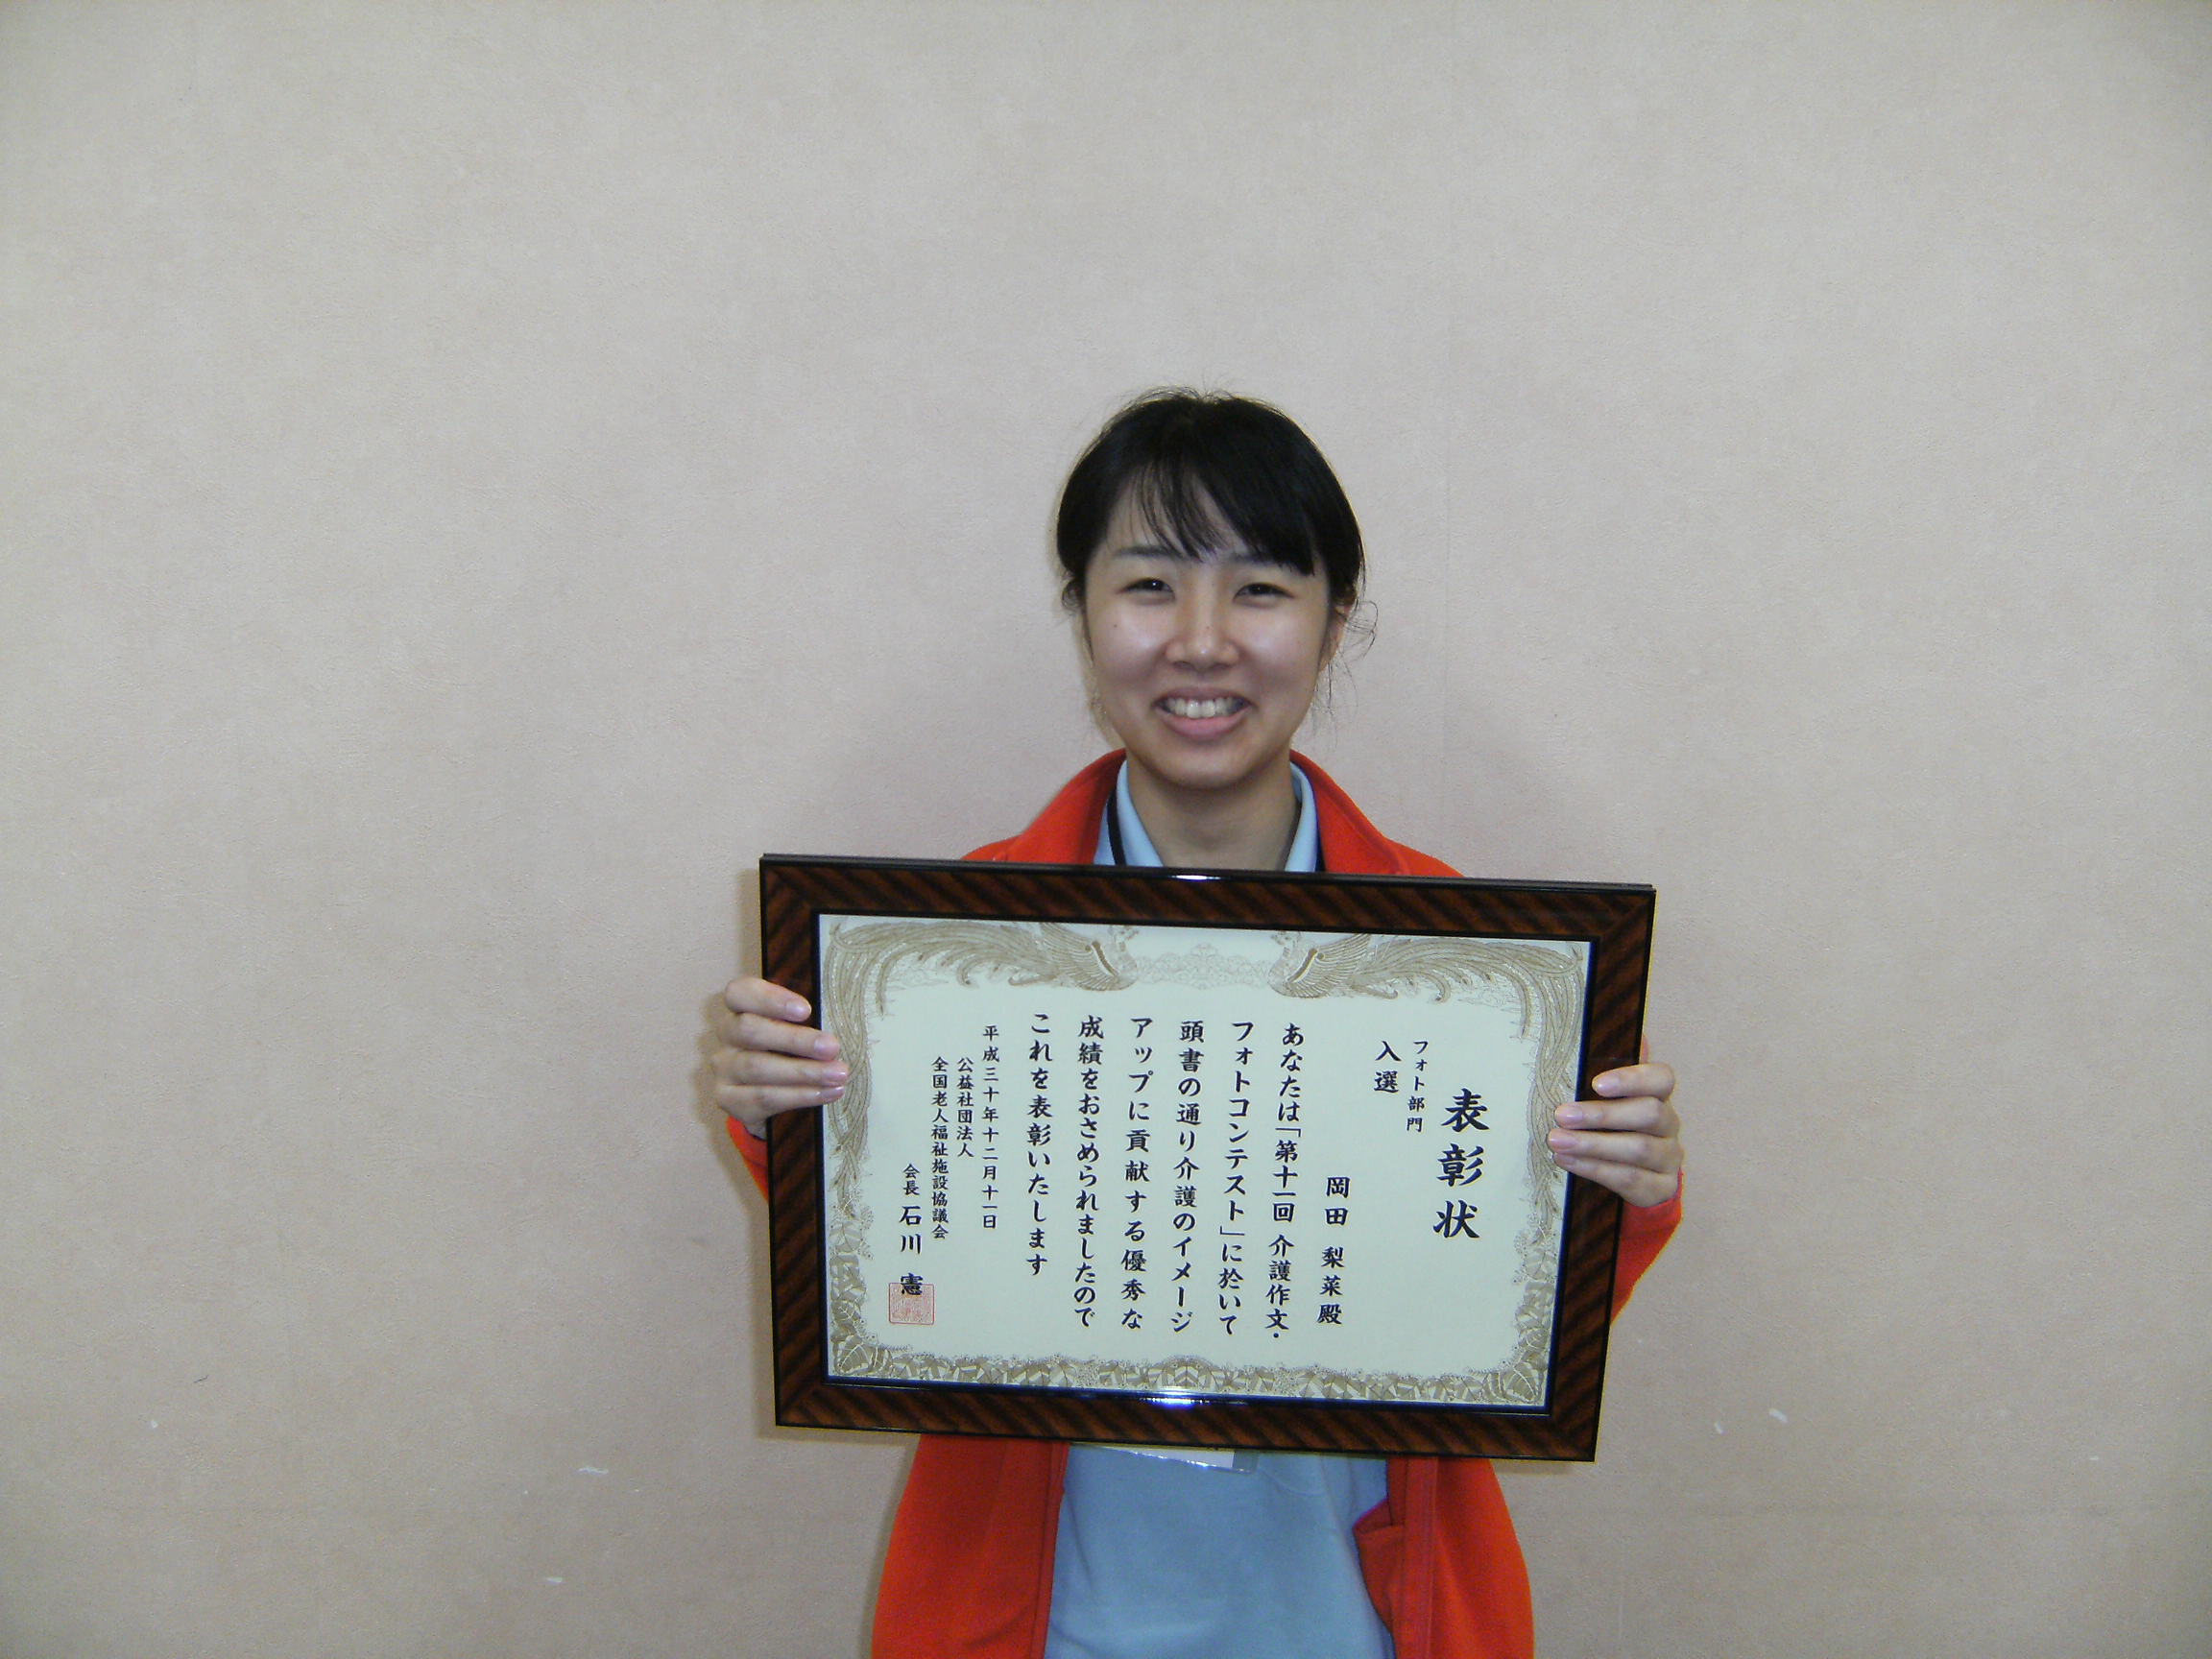 表彰状
フォト部門
入選
岡田 梨菜 殿
あなたは「第十一回 介護作文・
フォトコンテスト」に於いて
頭書の通り介護のイメージ
アップに貢献する優秀な
成績をおさめられましたので
これを表彰いたします
平成三十年十二月十一日
公益社団法人
全国老人福祉施設協議会
会長 石川 憲